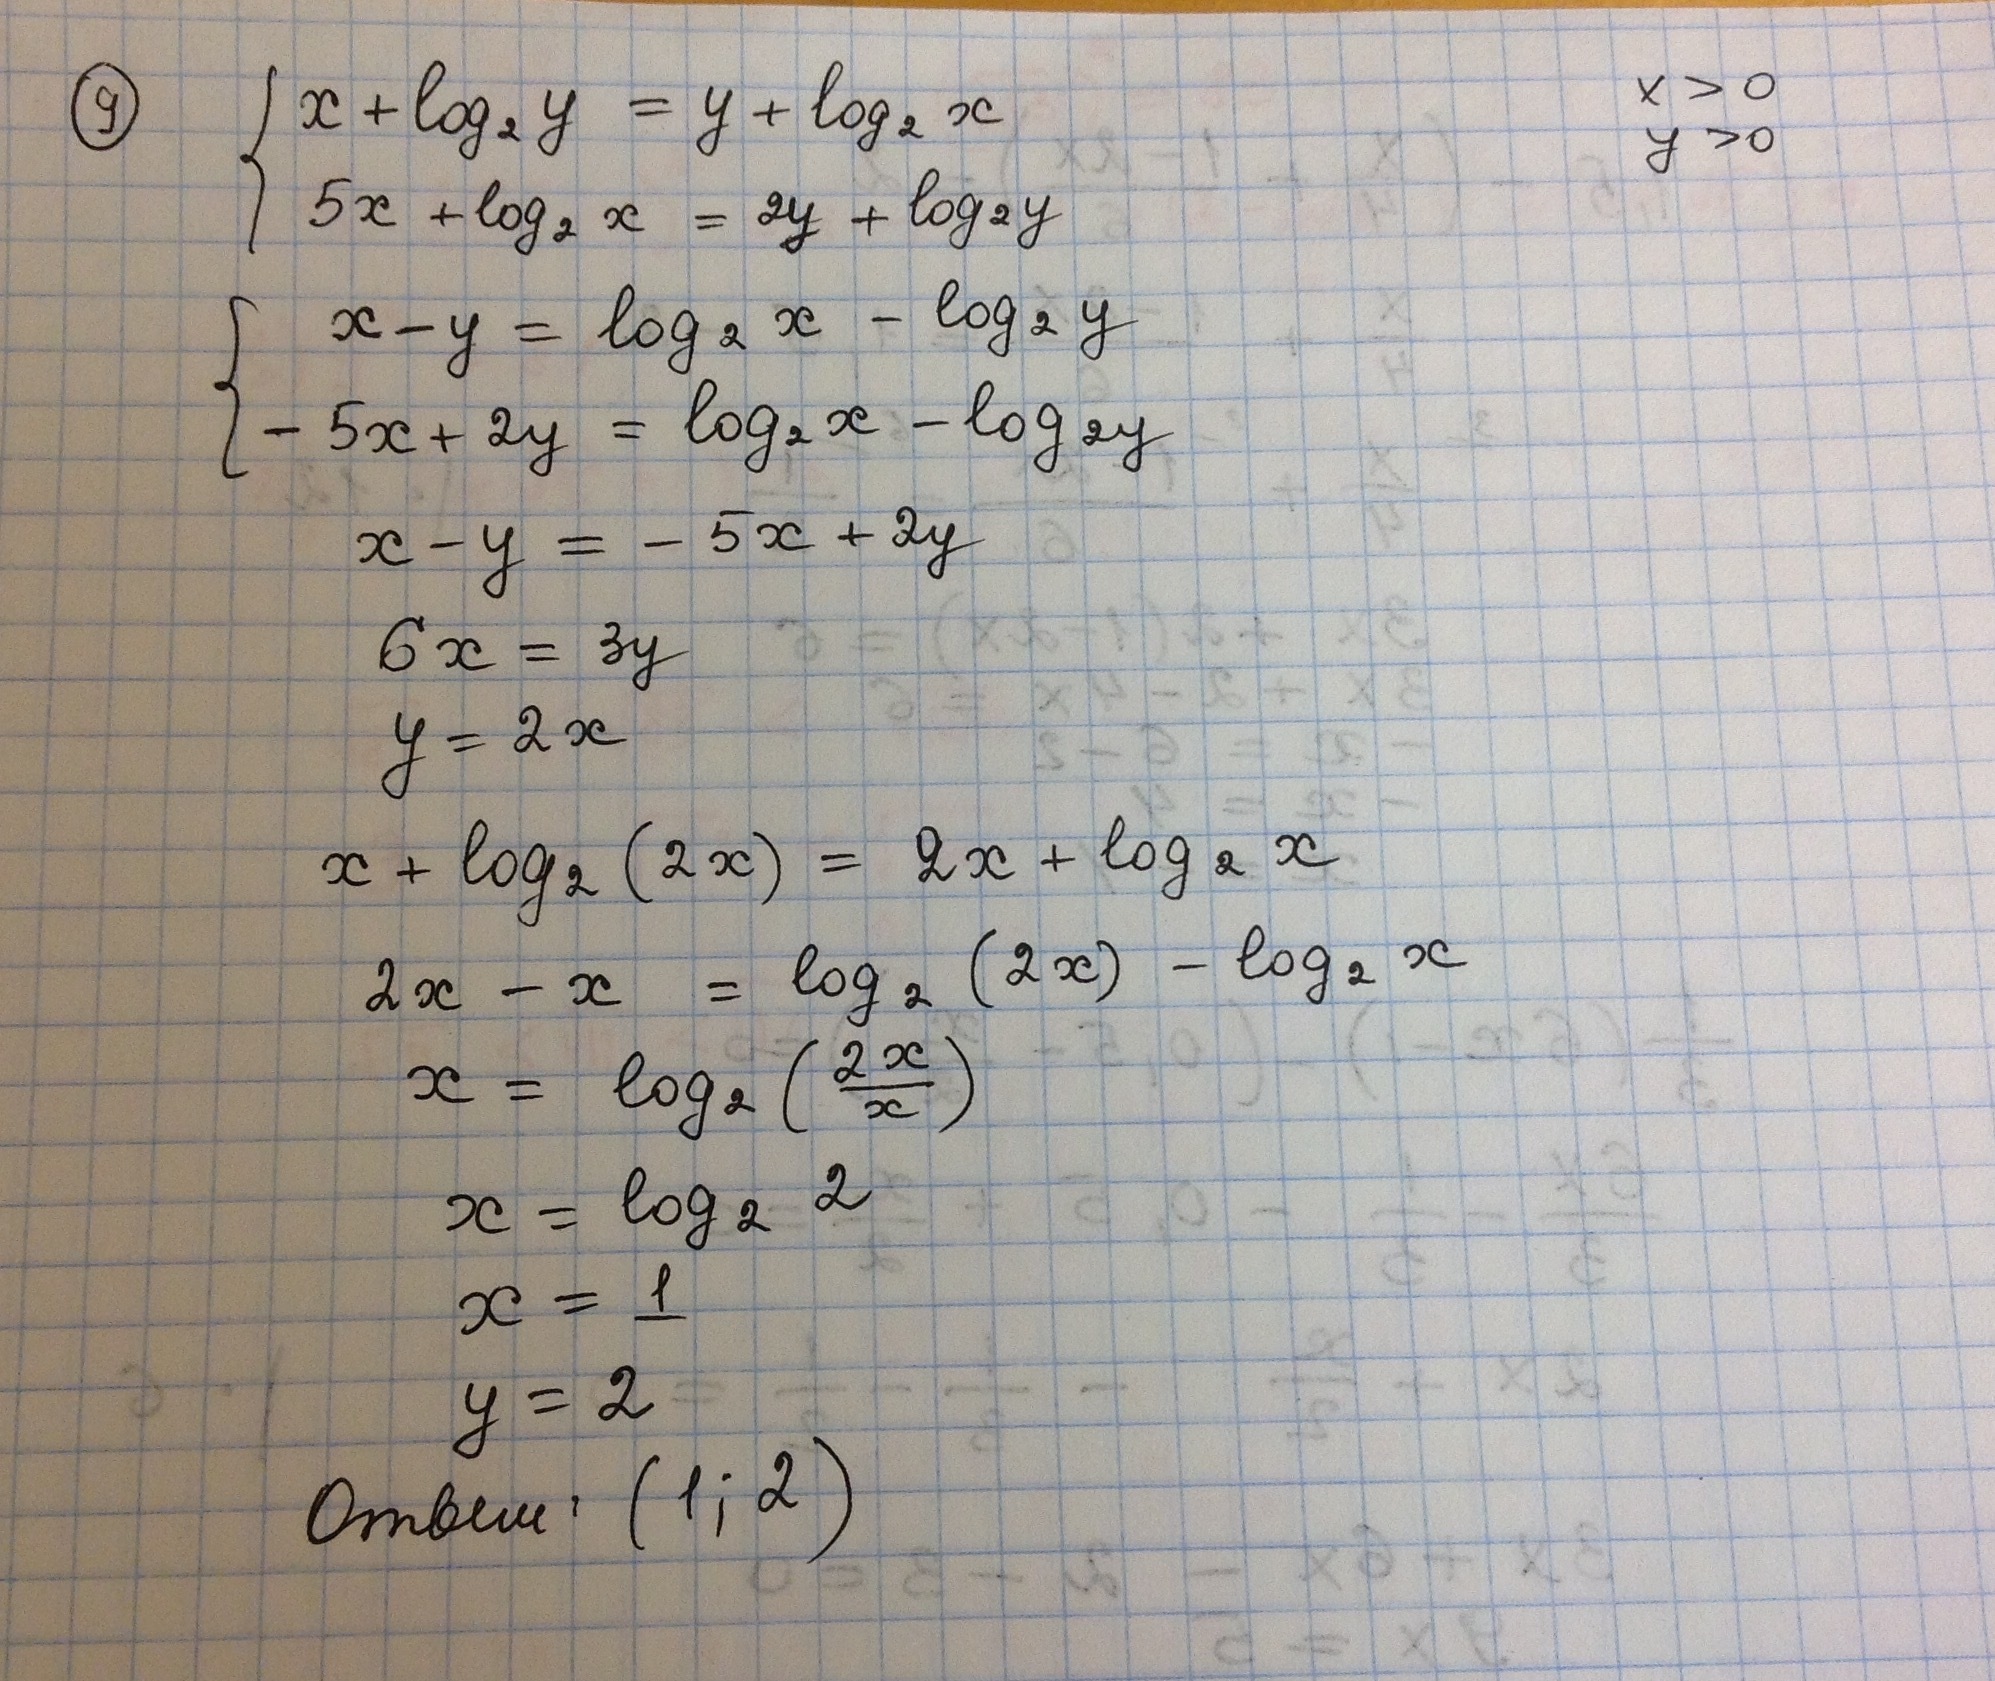 ⑨ { x + log₂ y = y + log₂ x    x > 0
5x + log₂ x = 2y + log₂ y    y > 0
{ x - y = log₂ x - log₂ y
- 5x + 2y = log₂ x - log₂ y
x - y = - 5x + 2y
6x = 3y
y = 2x
x + log₂ (2x) = 2x + log₂ x
2x - x = log₂ (2x) - log₂ x
x = log₂ (2x/x)
x = log₂ 2
x = 1
y = 2
Ответ: (1; 2)